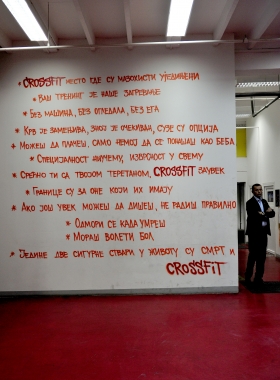 * CROSSFIT МЕСТО ГДЕ СУ МАЗОХИСТИ УЈЕДИЊЕНИ
* ВАШ ТРЕНИНГ ЈЕ НАШЕ ЗАГРЕВАЊЕ
* БЕЗ МАШИНА, БЕЗ ОГЛЕДАЛА, БЕЗ ЕГА
* КРВ ЈЕ ЗАМЕНИВА, ЗНОЈ ЈЕ ОЧЕКИВАН, СУЗЕ СУ ОПЦИЈА
* МОЖЕШ ДА ПЛАЧЕШ, САМО НЕМОЈ ДА СЕ ПОНАШАШ КАО БЕБА
* СПЕЦИЈАЛНОСТ НИУЧЕМУ, ИЗВРСНОСТ У СВЕМУ
* СРЕЋНО ТИ СА ТВОЈОМ ТЕРЕТАНОМ, CROSSFIT ЗАУВЕК
* ГРАНИЦЕ СУ ЗА ОНЕ КОЈИ ИХ ИМАЈУ
* АКО ЈОШ УВЕК МОЖЕШ ДА ДИШЕШ, НЕ РАДИШ ПРАВИЛНО
* ОДМОРИ СЕ КАДА УМРЕШ
* МОРАШ ВОЛЕТИ БОЛ
* ЈЕДИНЕ ДВЕ СИГУРНЕ СТВАРИ У ЖИВОТУ СУ СМРТ И
CROSSFIT